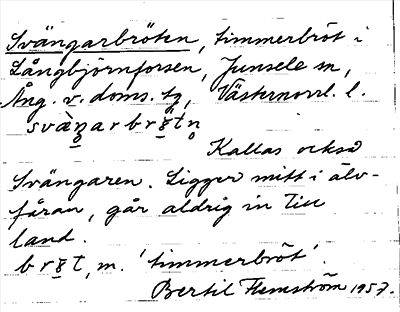 Svängarbröten, timmerbröt i
Långbjörnforsen, Junsele sn,
Ång. v. doms. tg, Västernorrl. l.
svæ̀ŋarbrö̀tn̥
Kallas också
Svängaren. Ligger mitt i älv-
fåran, går aldrig in till
land.
bröt, m. 'timmerbröt'.
Bertil Flemström 1957.